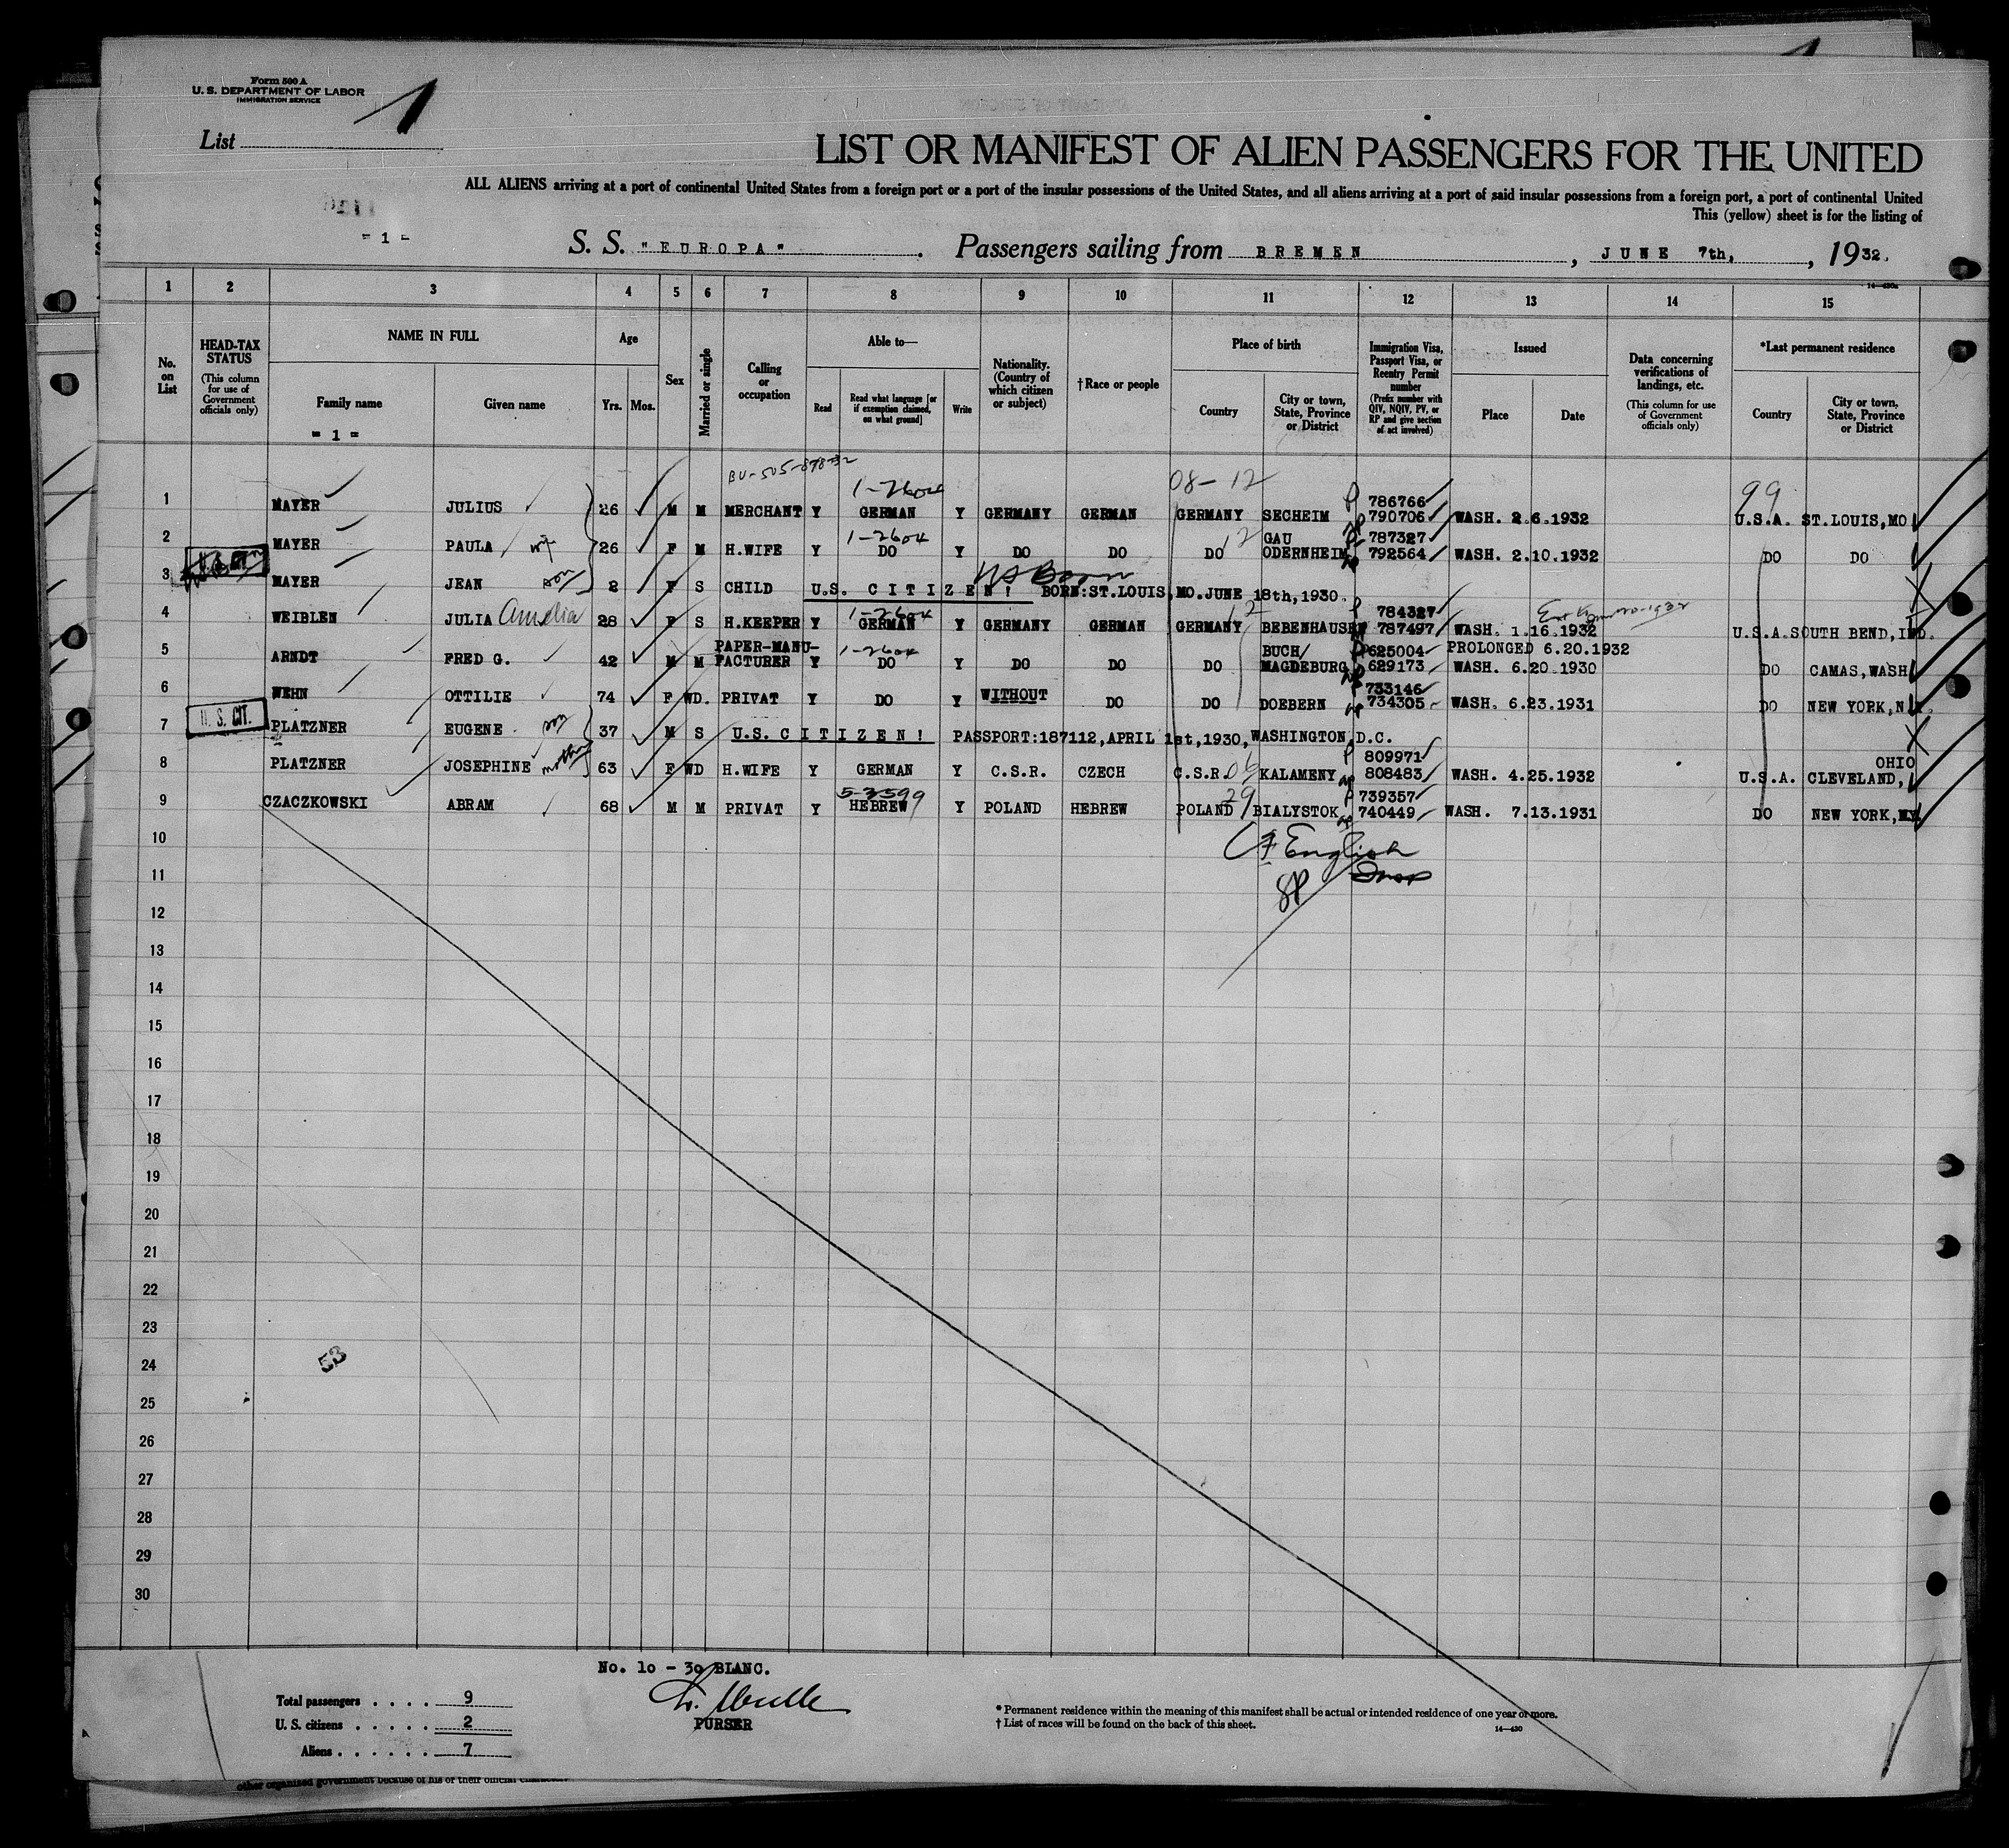 Form 500 A
U. S. DEPARTMENT OF LABOR
IMMIGRATION SERVICE
1
List
LIST OR MANIFEST OF ALIEN PASSENGERS FOR THE UNITED
ALL ALIENS arriving at a port of continental United States from a foreign port or a port of the insular possessions of the United States, and all aliens arriving at a port of said insular possessions from a foreign port, a port of continental United
This (yellow) sheet is for the listing of
- 1 -
S. S. "EUROPA". Passengers sailing from BREMEN, JUNE 7th, 1932.
1 2 3 4 5 6 7 8 9 10 11 12 13 14 15
No. on List
HEAD-TAX STATUS (This column for use of Government officials only)
NAME IN FULL
Family name
= 1 =
Given name
Age
Yrs. Mos.
Sex
Married or single
Calling or occupation
Able to—
Read
Read what language [or if exemption claimed, on what ground]
Write
Nationality. (Country of which citizen or subject)
† Race or people
Place of birth
Country
City or town, State, Province or District
Immigration Visa, Passport Visa, or Reentry Permit number
(Prefix number with QIV, NQIV, PV, or RP and give section of act involved)
Issued
Place
Date
Data concerning verifications of landings, etc.
(This column for use of Government officials only)
*Last permanent residence
Country
City or town, State, Province or District
BU-505-878-32
1-2604 08-12 99
1 MAYER JULIUS 26 M M MERCHANT Y GERMAN Y GERMANY GERMAN GERMANY SECHEIM P 786766 790706 WASH. 2.6.1932 U.S.A. ST.LOUIS,MO
1-2604 12
2 MAYER PAULA wife 26 F M H.WIFE Y DO Y DO DO DO GAU ODERNHEIM 787327 792564 WASH. 2.10.1932 DO DO
US Born
3 MAYER JEAN son 2 F S CHILD U.S. CITIZEN! BORN:ST.LOUIS,MO.JUNE 18th,1930.
1-2604 12
4 WEIBLEN JULIA Amelia 28 F S H.KEEPER Y GERMAN Y GERMANY GERMAN GERMANY BEBENHAUSEN 784327 787497 WASH. 1.16.1932 U.S.A. SOUTH BEND,IND.
1-2604
5 ARNDT FRED G. 42 M M PAPER-MANU-FACTURER Y DO Y DO DO DO BUCH/ MAGDEBURG 625004 629173 PROLONGED 6.20.1932 WASH. 6.20.1930 DO CAMAS,WASH
6 WEHN OTTILIE 74 F WD. PRIVAT Y DO Y WITHOUT DO DO DOEBERN 733146 734305 WASH. 6.23.1931 DO NEW YORK,N.Y.
U. S. CIT.
7 PLATZNER EUGENE son 37 M S U.S. CITIZEN! PASSPORT:187112,APRIL 1st,1930,WASHINGTON,D.C.
8 PLATZNER JOSEPHINE mother 63 F WD H.WIFE Y GERMAN Y C.S.R. CZECH C.S.R. 06 KALAMENY P 809971 808483 WASH. 4.25.1932 U.S.A. OHIO CLEVELAND,
5-3599 29
9 CZACZKOWSKI ABRAM 68 M M PRIVAT Y HEBREW Y POLAND HEBREW POLAND BIALYSTOK P 739357 740449 WASH. 7.13.1931 DO NEW YORK,NY.
10
English
11
Insp
12
13
14
15
16
17
18
19
20
21
22
23
24
53
25
26
27
28
29
30
No. 10 - 30 BLANC.
Total passengers . . . . 9
U. S. citizens . . . . . 2
Aliens . . . . . . 7
PURSER
* Permanent residence within the meaning of this manifest shall be actual or intended residence of one year or more.
† List of races will be found on the back of this sheet.
14—430
other organized government because of his or their official character